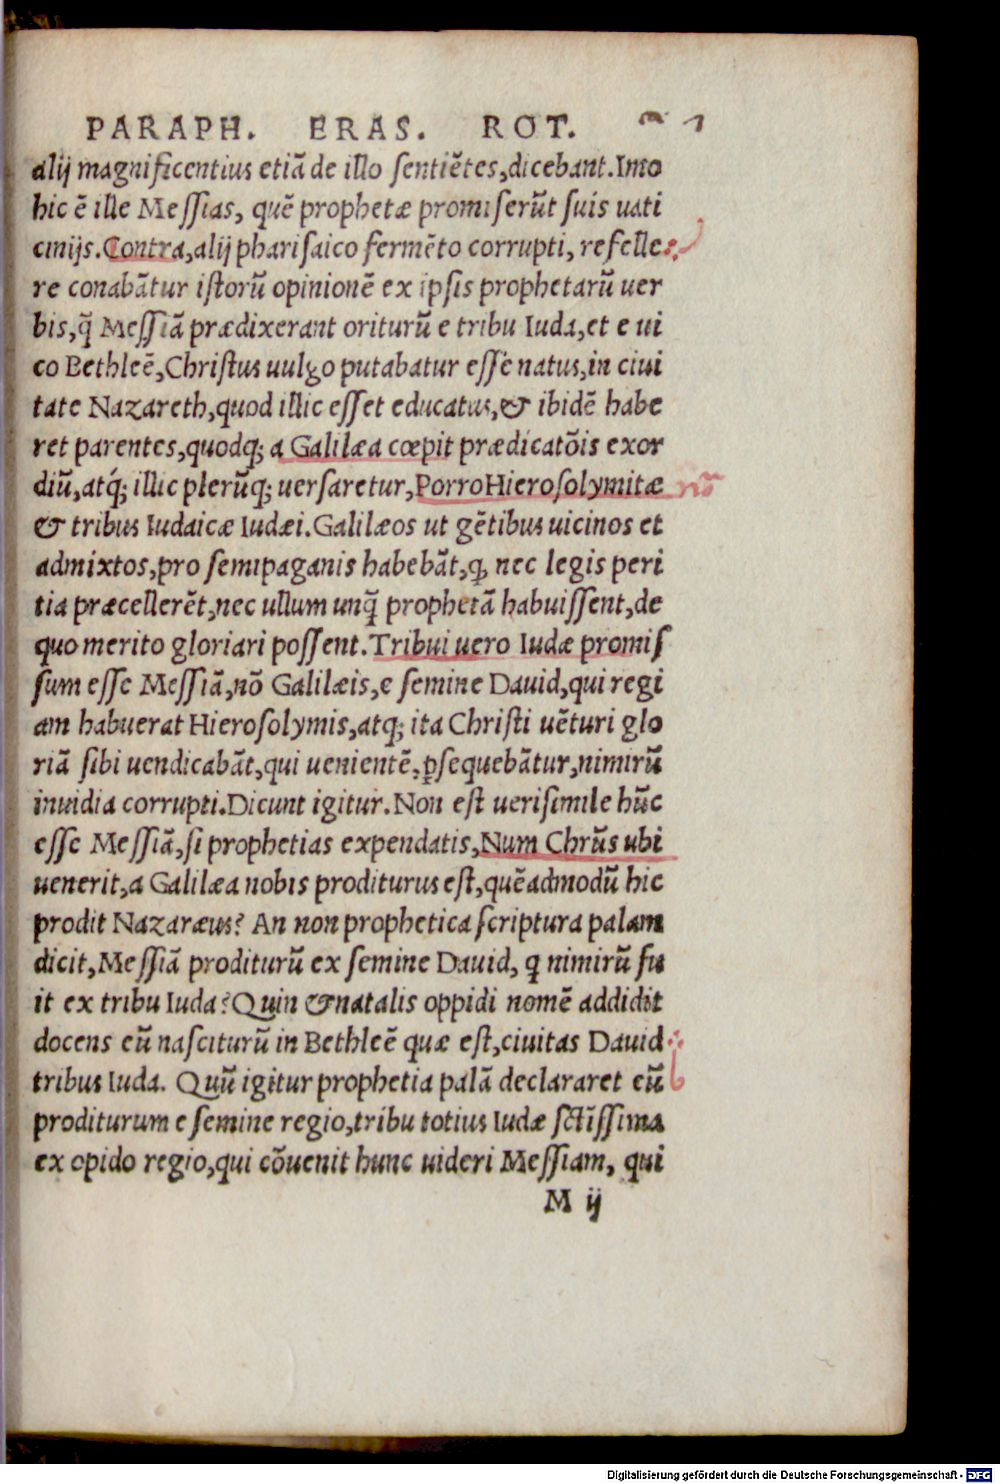 PARAPH. ERAS. ROT.
alij magnificentius etiā de illo ſentiētes,dicebant.Imo
hic ē ille Meſſias, quē prophetæ promiſerūt ſuis uati
cinijs.Contra,alij phariſaico fermēto corrupti, refelle
re conabātur iſtorū opinionē ex ipſis prophetarū uer
bis,q̄ Meſſiā prædixerant oriturū e tribu Iuda,et e ui
co Bethleē,Chriſtus uulgo putabatur eſſe natus,in ciui
tate Nazareth,quod illic eſſet educatus,& ibidē habe
ret parentes,quodq; a Galilæa cœpit prædicatōis exor
diū,atq́; illic plerūq; uerſaretur,Porro Hieroſolymitæ
& tribus Iudaicæ Iudæi.Galilæos ut gētibus uicinos et
admixtos,pro ſemipaganis habebāt,ꝙ nec legis peri
tia præcellerēt,nec ullum unq̄ prophetā habuiſſent,de
quo merito gloriari poſſent.Tribui uero Iudæ promiſ
ſum eſſe Meſſiā,nō Galilæis,e ſemine Dauid,qui regi
am habuerat Hieroſolymis,atq; ita Chriſti uēturi glo
riā ſibi uendicabāt,qui uenientē,ꝑſequebātur,nimirū
inuidia corrupti.Dicunt igitur.Non eſt ueriſimile hūc
eſſe Meſſiā,ſi prophetias expendatis,Num Chrūs ubi
uenerit,a Galilæa nobis proditurus eſt,quēadmodū hic
prodit Nazaræus? An non prophetica ſcriptura palam
dicit,Meſſiā proditurū ex ſemine Dauid, q nimirū fu
it ex tribu Iuda?Quin & natalis oppidi nomē addidit
docens eū naſciturū in Bethleē quæ eſt,ciuitas Dauid
tribus Iuda. Quū igitur prophetia palā declararet eū
proditurum e ſemine regio,tribu totius Iudæ ſctīſſima
ex opido regio,qui cōuenit hunc uideri Meſſiam, qui
M ij
Digitalisierung gefördert durch die Deutsche Forschungsgemeinschaft - DFG